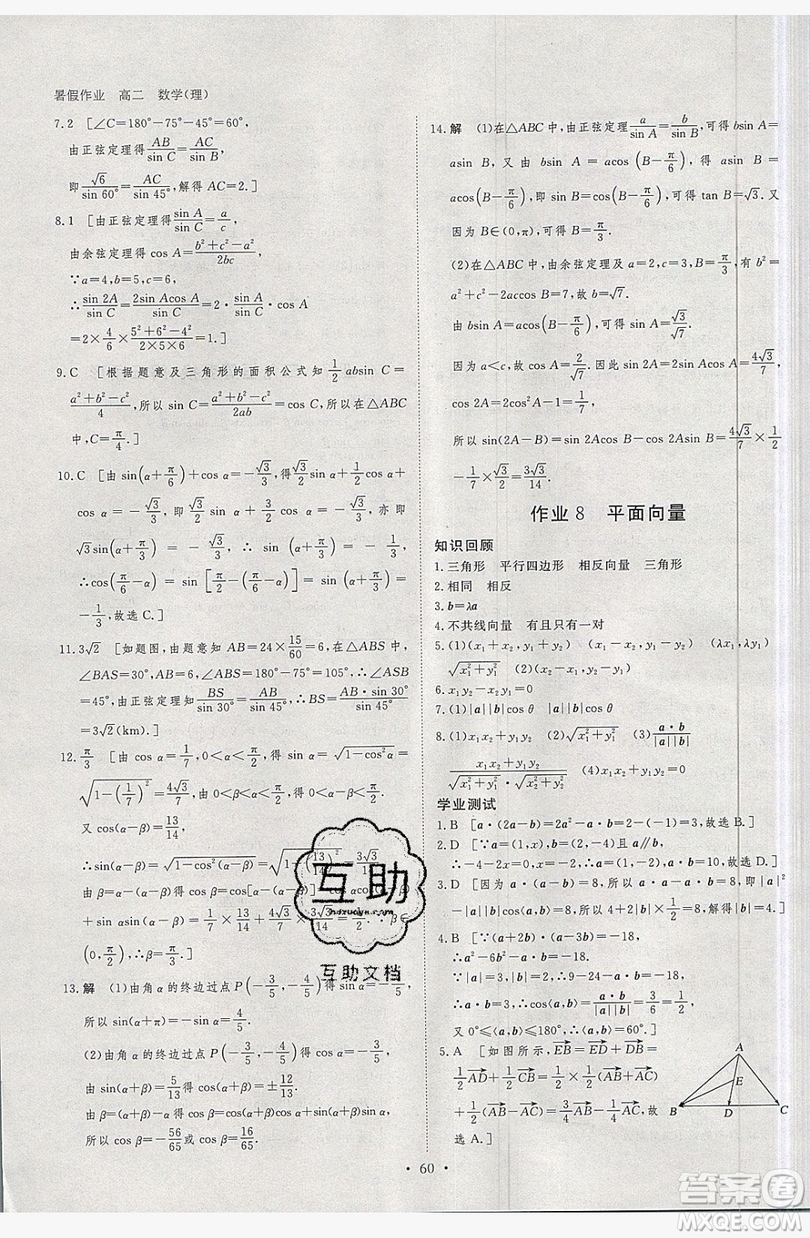 暑假作业 高二 数学(理)
7.2 [∠C=180°-75°-45°=60°,
由正弦定理得AB/sin C=AC/sin B,
即√6/sin 60°=AC/sin 45°,所以AC=2.]
8.1 [由正弦定理得sin A/sin C=a/c,
由余弦定理得 cos A=(b²+c²-a²)/2bc,
∵a=4,b=5,c=6,
∴sin 2A/sin C=2sin Acos A/sin C=2·sin A/sin C·cos A
=2×4/6×(5²+6²-4²)/(2×5×6)=1.]
9.C [根据题意及三角形的面积公式知 1/2 absin C=
(a²+b²-c²)/4,所以 sin C=(a²+b²-c²)/2ab=cos C,所以在△ABC
中,C=π/4.]
10.C [由 sin(α+π/6)+cos α=-√3/3,得 √3/2 sin α+1/2
cos α+cos α=-√3/3,即 √3/2 sin α+3/2 cos α=-√3/3,亦即
√3 sin(α+π/3)=-√3/3,∴ sin(α+π/3)=-1/3,
∴ cos(π/6-α)=sin[π/2-(π/6-α)]=sin(π/3+α)=
-1/3,故选C.]
11.3√2 [如题图,由题意知 AB=24×15/60=6,在△ABS中,
∠BAS=30°,AB=6,∠ABS=180°-75°=105°,∴∠ASB
=45°,由正弦定理知BS/sin 30°=AB/sin 45°,∴BS=AB·sin 30°/sin 45°
=3√2(km).]
12.π/3 [由 cos α=1/7,0<α<π/2,得 sin α=√(1-cos²α)=
√(1-(1/7)²)=4√3/7,由 0<β<α<π/2,得 0<α-β<π/2.
又 cos(α-β)=13/14,
∴sin(α-β)=√(1-cos²(α-β))=√(1-(13/14)²)=3√3/14.
由 β=α-(α-β)得 cos β=cos[α-(α-β)]=cos αcos(α-β)
+sin αsin(α-β)=1/7×13/14+4√3/7×3√3/14=1/2.∵β∈
(0,π/2),∴β=π/3.]
13.解 (1)由角 α 的终边过点 P(-3/5,-4/5)得 sin α=-4/5,
所以 sin(α+π)=-sin α=4/5.
(2)由角 α 的终边过点 P(-3/5,-4/5)得 cos α=-3/5,
由 sin(α+β)=5/13得 cos(α+β)=±12/13.
由 β=(α+β)-α得 cos β=cos(α+β)cos α+sin(α+β)sin α,
所以 cos β=-56/65或 cos β=16/65.
14.解 (1)在△ABC中,由正弦定理a/sin A=b/sin B,可得 bsin A=
asin B,又由 bsin A=acos(B-π/6),得 asin B=
acos(B-π/6),即 sin B=cos(B-π/6),可得 tan B=√3.又
因为 B∈(0,π),可得 B=π/3.
(2)在△ABC中,由余弦定理及 a=2,c=3,B=π/3,有 b²=
a²+c²-2accos B=7,故 b=√7.
由 bsin A=acos(B-π/6),可得 sin A=√3/√7.
因为 a<c,故 cos A=2/√7.因此 sin 2A=2sin Acos A=4√3/7,
cos 2A=2cos²A-1=1/7.
所以 sin(2A-B)=sin 2Acos B-cos 2Asin B=4√3/7×1/2
-1/7×√3/2=3√3/14.
作业8 平面向量
知识回顾
1.三角形 平行四边形 相反向量 三角形
2.相同 相反
3.b=λa
4.不共线向量 有且只有一对
5.(1)(x₁+x₂,y₁+y₂) (x₁-x₂,y₁-y₂) (λx₁,λy₁)
√(x₁²+y₁²) (2)(x₂-x₁,y₂-y₁) √((x₂-x₁)²+(y₂-y₁)²)
6.x₁y₂-x₂y₁=0
7.(1)|a||b|cos θ |a||b|cos θ
8.(1)x₁x₂+y₁y₂ (2)√(x₁²+y₁²) (3)a·b/|a||b|
(x₁x₂+y₁y₂)/(√(x₁²+y₁²)·√(x₂²+y₂²)) (4)x₁x₂+y₁y₂=0
学业测试
1.B [a·(2a-b)=2a²-a·b=2-(-1)=3,故选B.]
2.D [∵a=(1,x),b=(-2,4),且 a∥b,
∴-4-2x... 
3.D [因为 a·(b-a)=a·b-a²=8,所以 即 |a|²
-|a||b|cos⟨a,b⟩=8,所以
4.B [∵(a+2b)·(a-3b)=-18,
∴a²-6b²-a·b=-18,
∵|a|=3,|b|=2,∴9-24-a·b=-18,
∴a·b=3,∴cos⟨a,b⟩=a·b/|a||b|=3/6=1/2,
又0°≤⟨a,b⟩≤180°,∴⟨a,b⟩=60°.]
5.A [如图所示,EB=ED+DB=
1/2AD+1/2CB=1/2×1/2(AB+AC)+
1/2(AB-AC)=3/4AB-1/4AC,故
选A.]
A
E
B D C
互助
互助文档
· 60 ·
答案圈
MXQE.COM